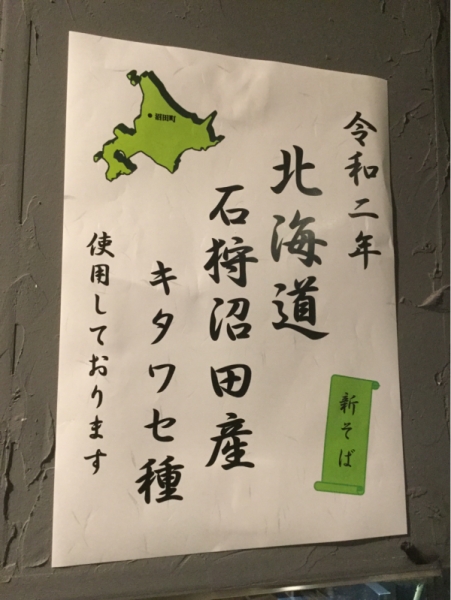 令和二年
北海道
石狩沼田産
キタワセ種
使用しております
新そば